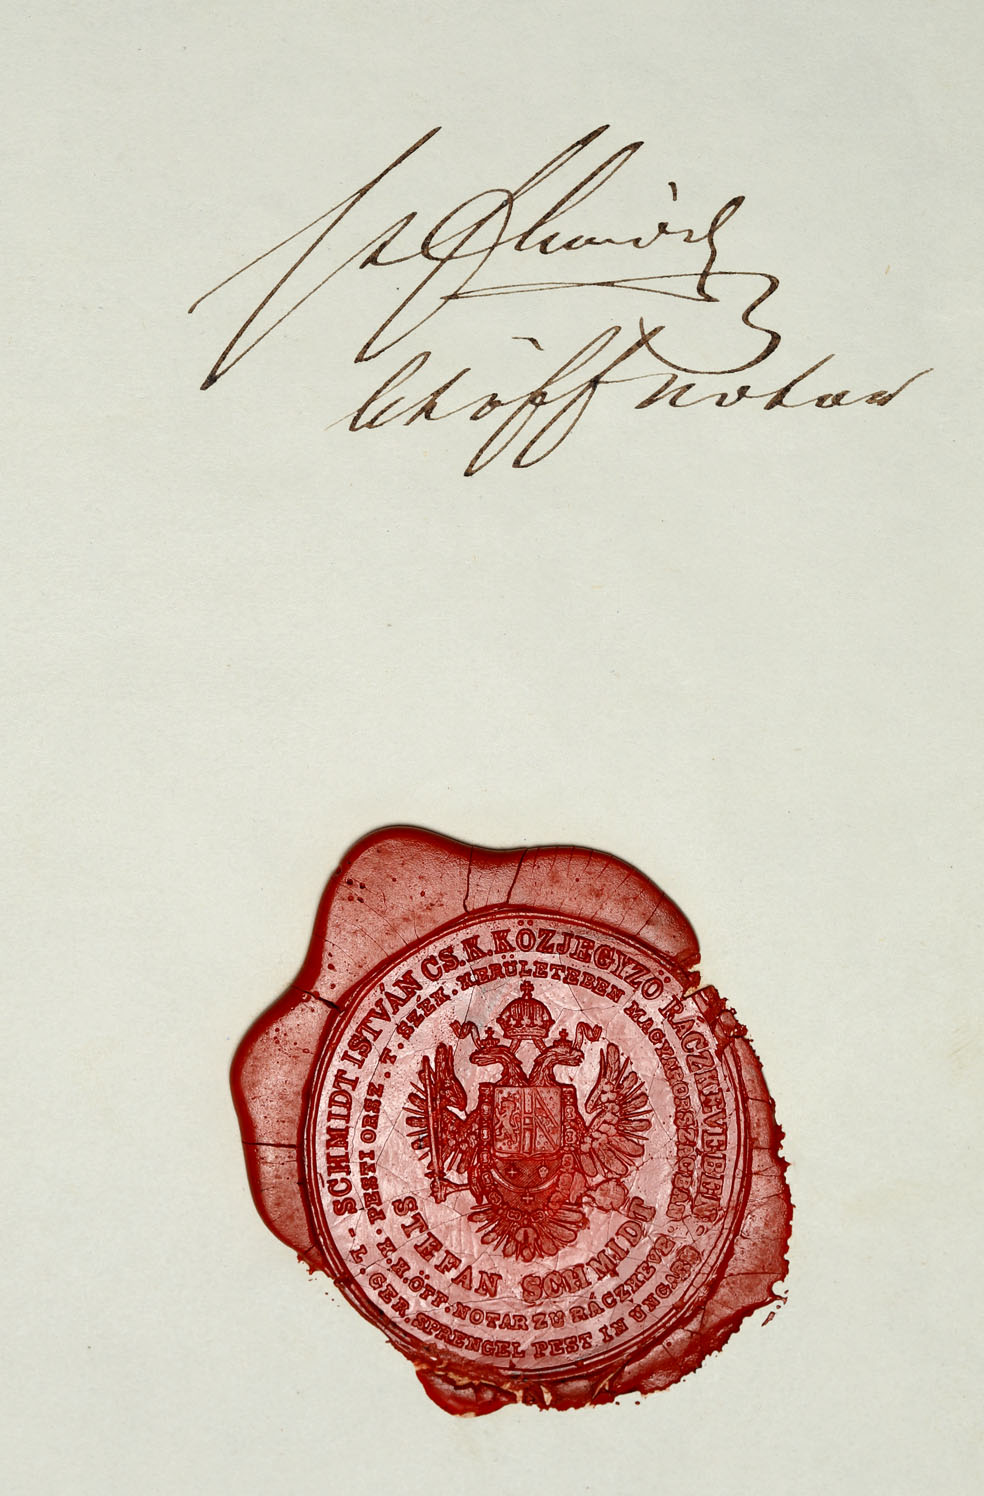 St Schmidt
k k öff Notar
SCHMIDT ISTVÁN CS.K.KÖZJEGYZÖ RÁCZKEVEBEN
PESTI ORSZ. T. SZÉK. KERÜLETEBEN MAGYARORSZÁGBAN.
STEFAN SCHMIDT
K.K.ÖFF.NOTAR ZU RÁCZKEVE.
L. GER. SPRENGEL PEST IN UNGARN